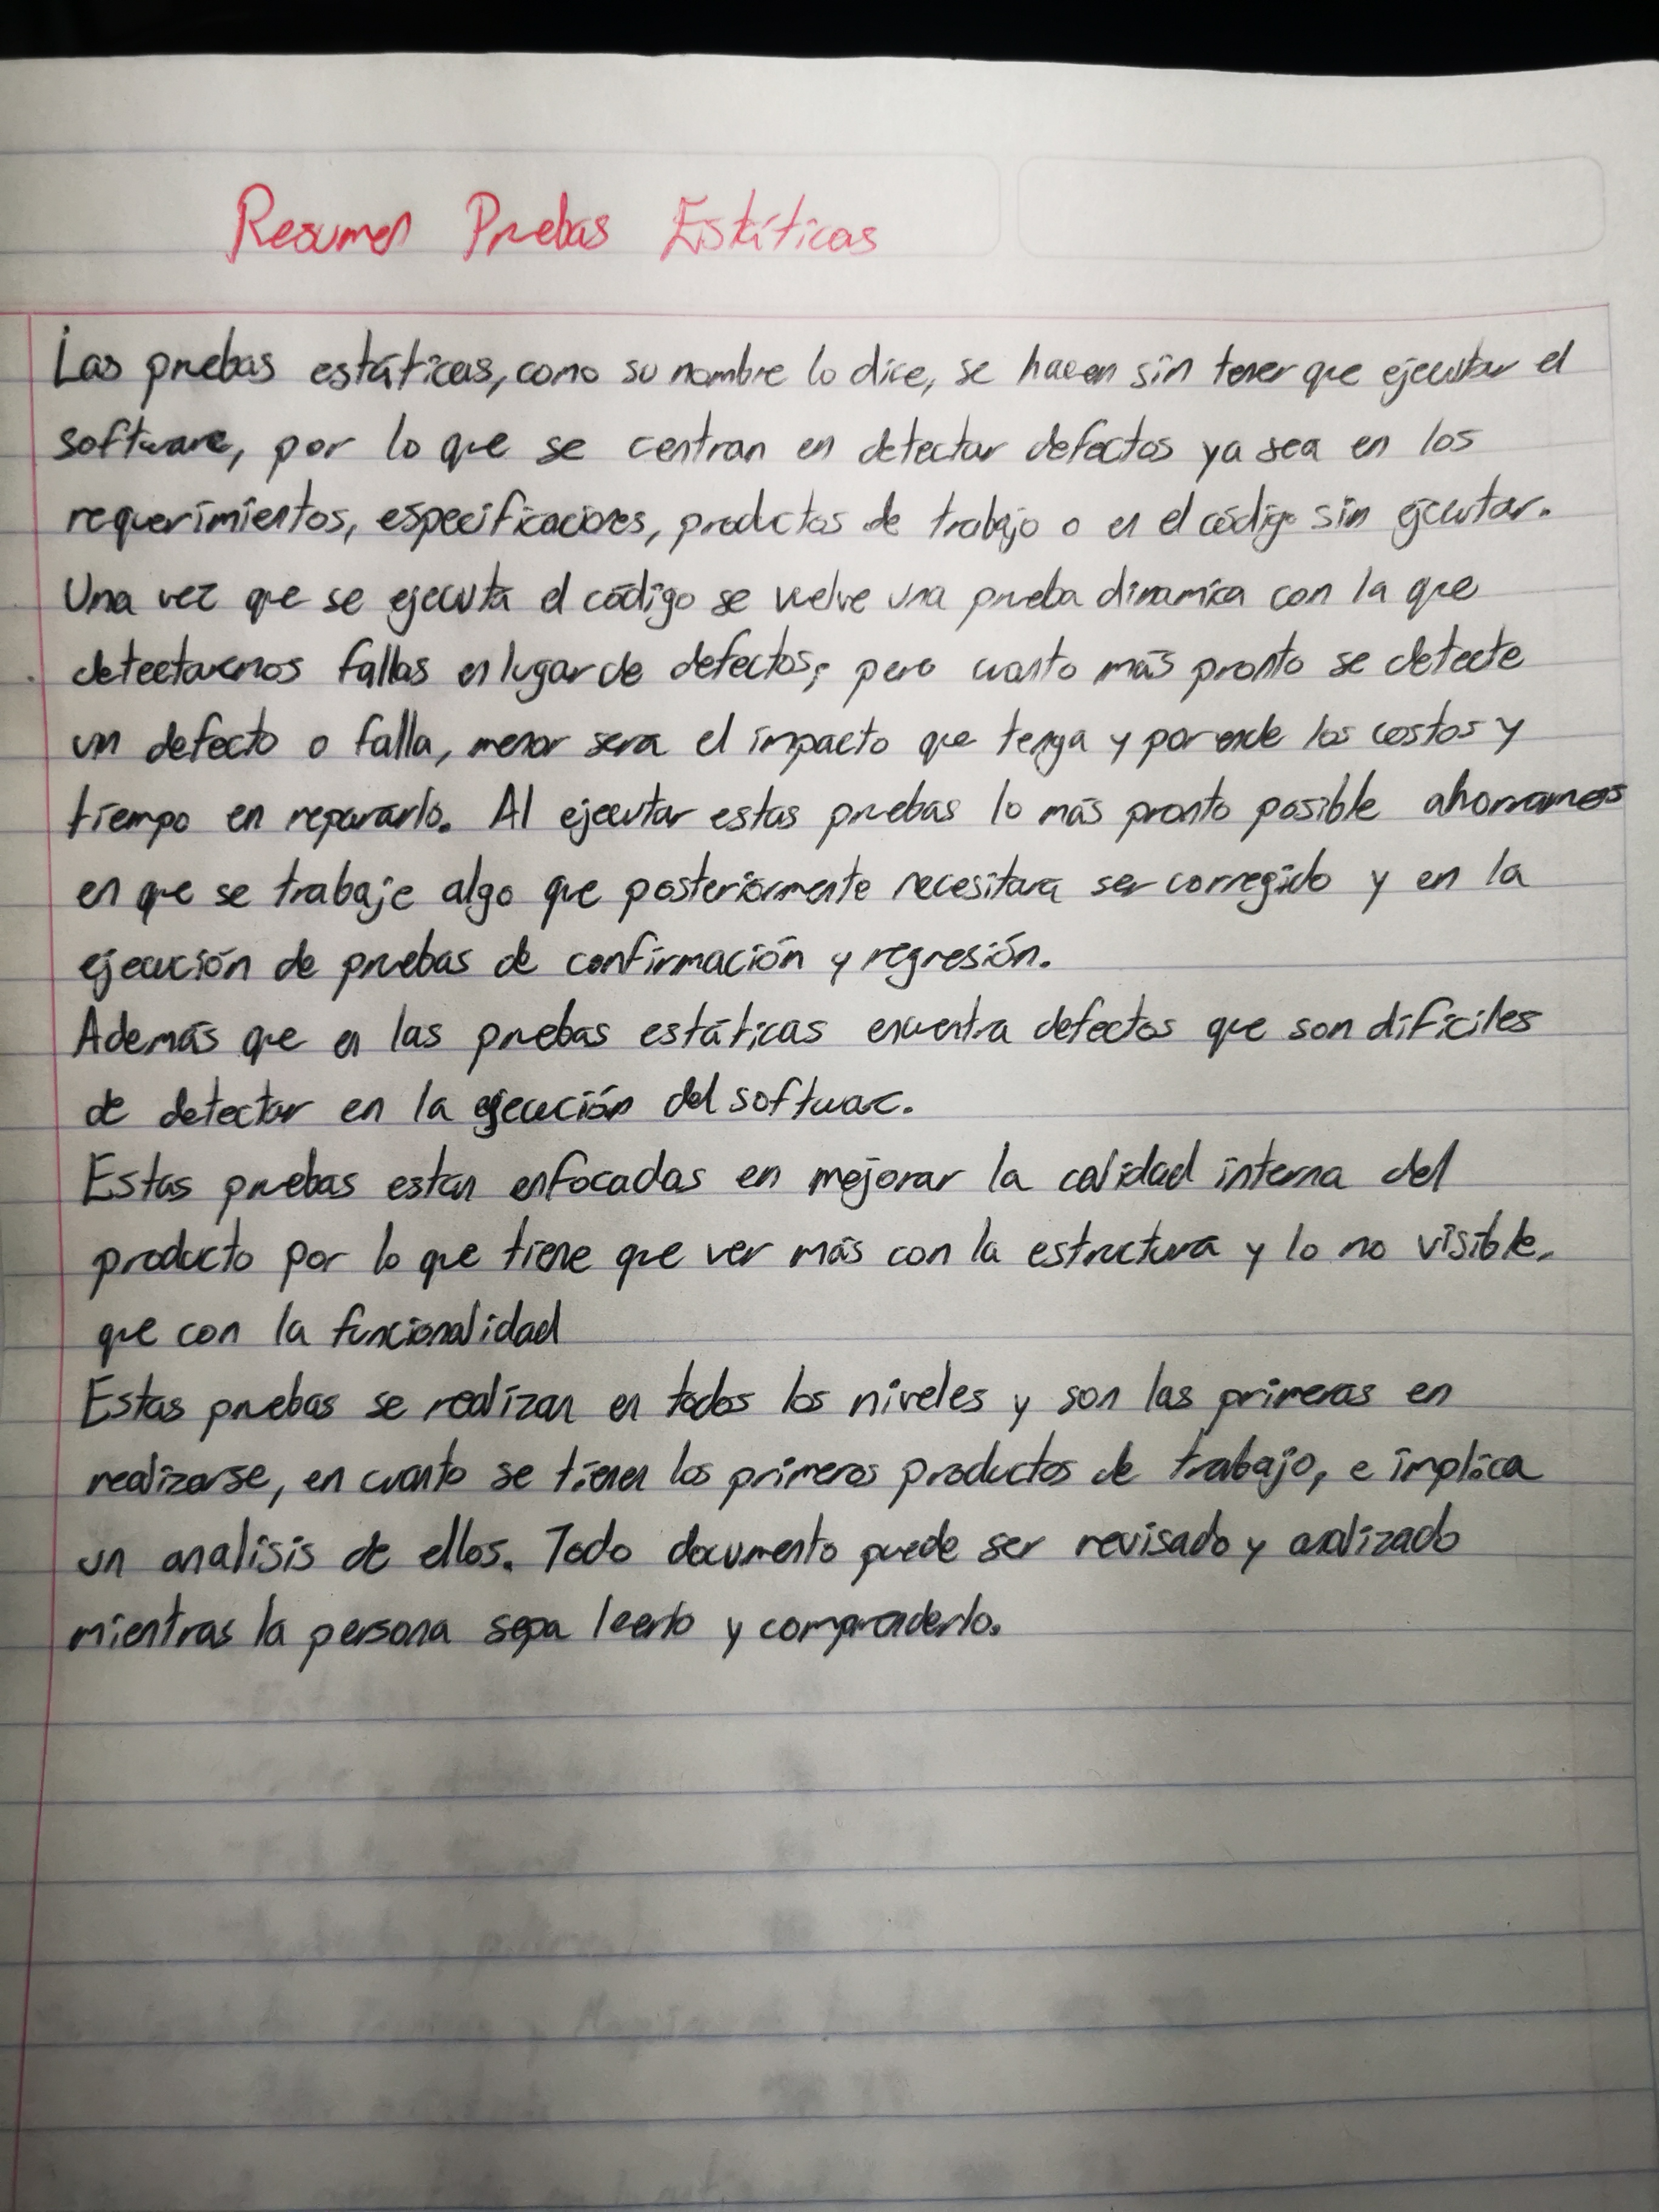 Resumen Pruebas Estáticas
Las pruebas estáticas, como su nombre lo dice, se hacen sin tener que ejecutar el
software, por lo que se centran en detectar defectos ya sea en los
requerimientos, especificaciones, productos de trabajo o en el código sin ejecutar.
Una vez que se ejecuta el código se vuelve una prueba dinamica con la que
detectaremos fallas en lugar de defectos, pero cuanto más pronto se detecte
un defecto o falla, menor sera el impacto que tenga y por ende los costos y
tiempo en repararlo. Al ejecutar estas pruebas lo más pronto posible ahorramos
en que se trabaje algo que posteriormente necesitara ser corregido y en la
ejecución de pruebas de confirmación y regresión.
Además que en las pruebas estáticas encuentra defectos que son dificiles
de detectar en la ejecución del software.
Estas pruebas estan enfocadas en mejorar la calidad interna del
producto por lo que tiene que ver más con la estructura y lo no visible,
que con la funcionalidad
Estas pruebas se realizan en todos los niveles y son las primeras en
realizarse, en cuanto se tienen los primeros productos de trabajo, e implica
un analisis de ellos. Todo documento puede ser revisado y analizado
mientras la persona sepa leerlo y comprenderlo.